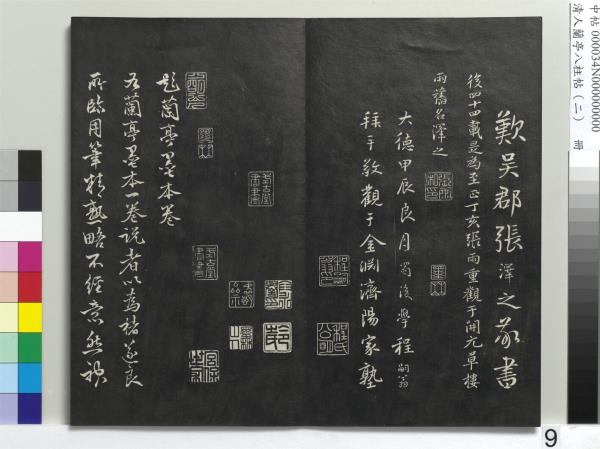 歎吳郡張澤之敬書
後四十四載是為至正丁亥張雨重觀于開元草樓
雨舊名澤之
大德甲辰良月蜀後學程嗣翁
拜手敬觀于金淵濟陽家塾
題蘭亭墨本卷
右蘭亭墨本一卷說者以為褚遂良
所臨用筆精熟略不經意然神
中帖 000034N000000000
清人蘭亭八柱帖(二) 冊
9